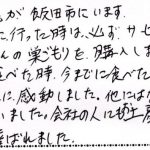 が飯田市にいます。
に行った時は、必ずサセ
んの巣ごもりを購入しま
べた時、今までに食べた
に感動しました。他には
いました。会社の人に
喜ばれました。